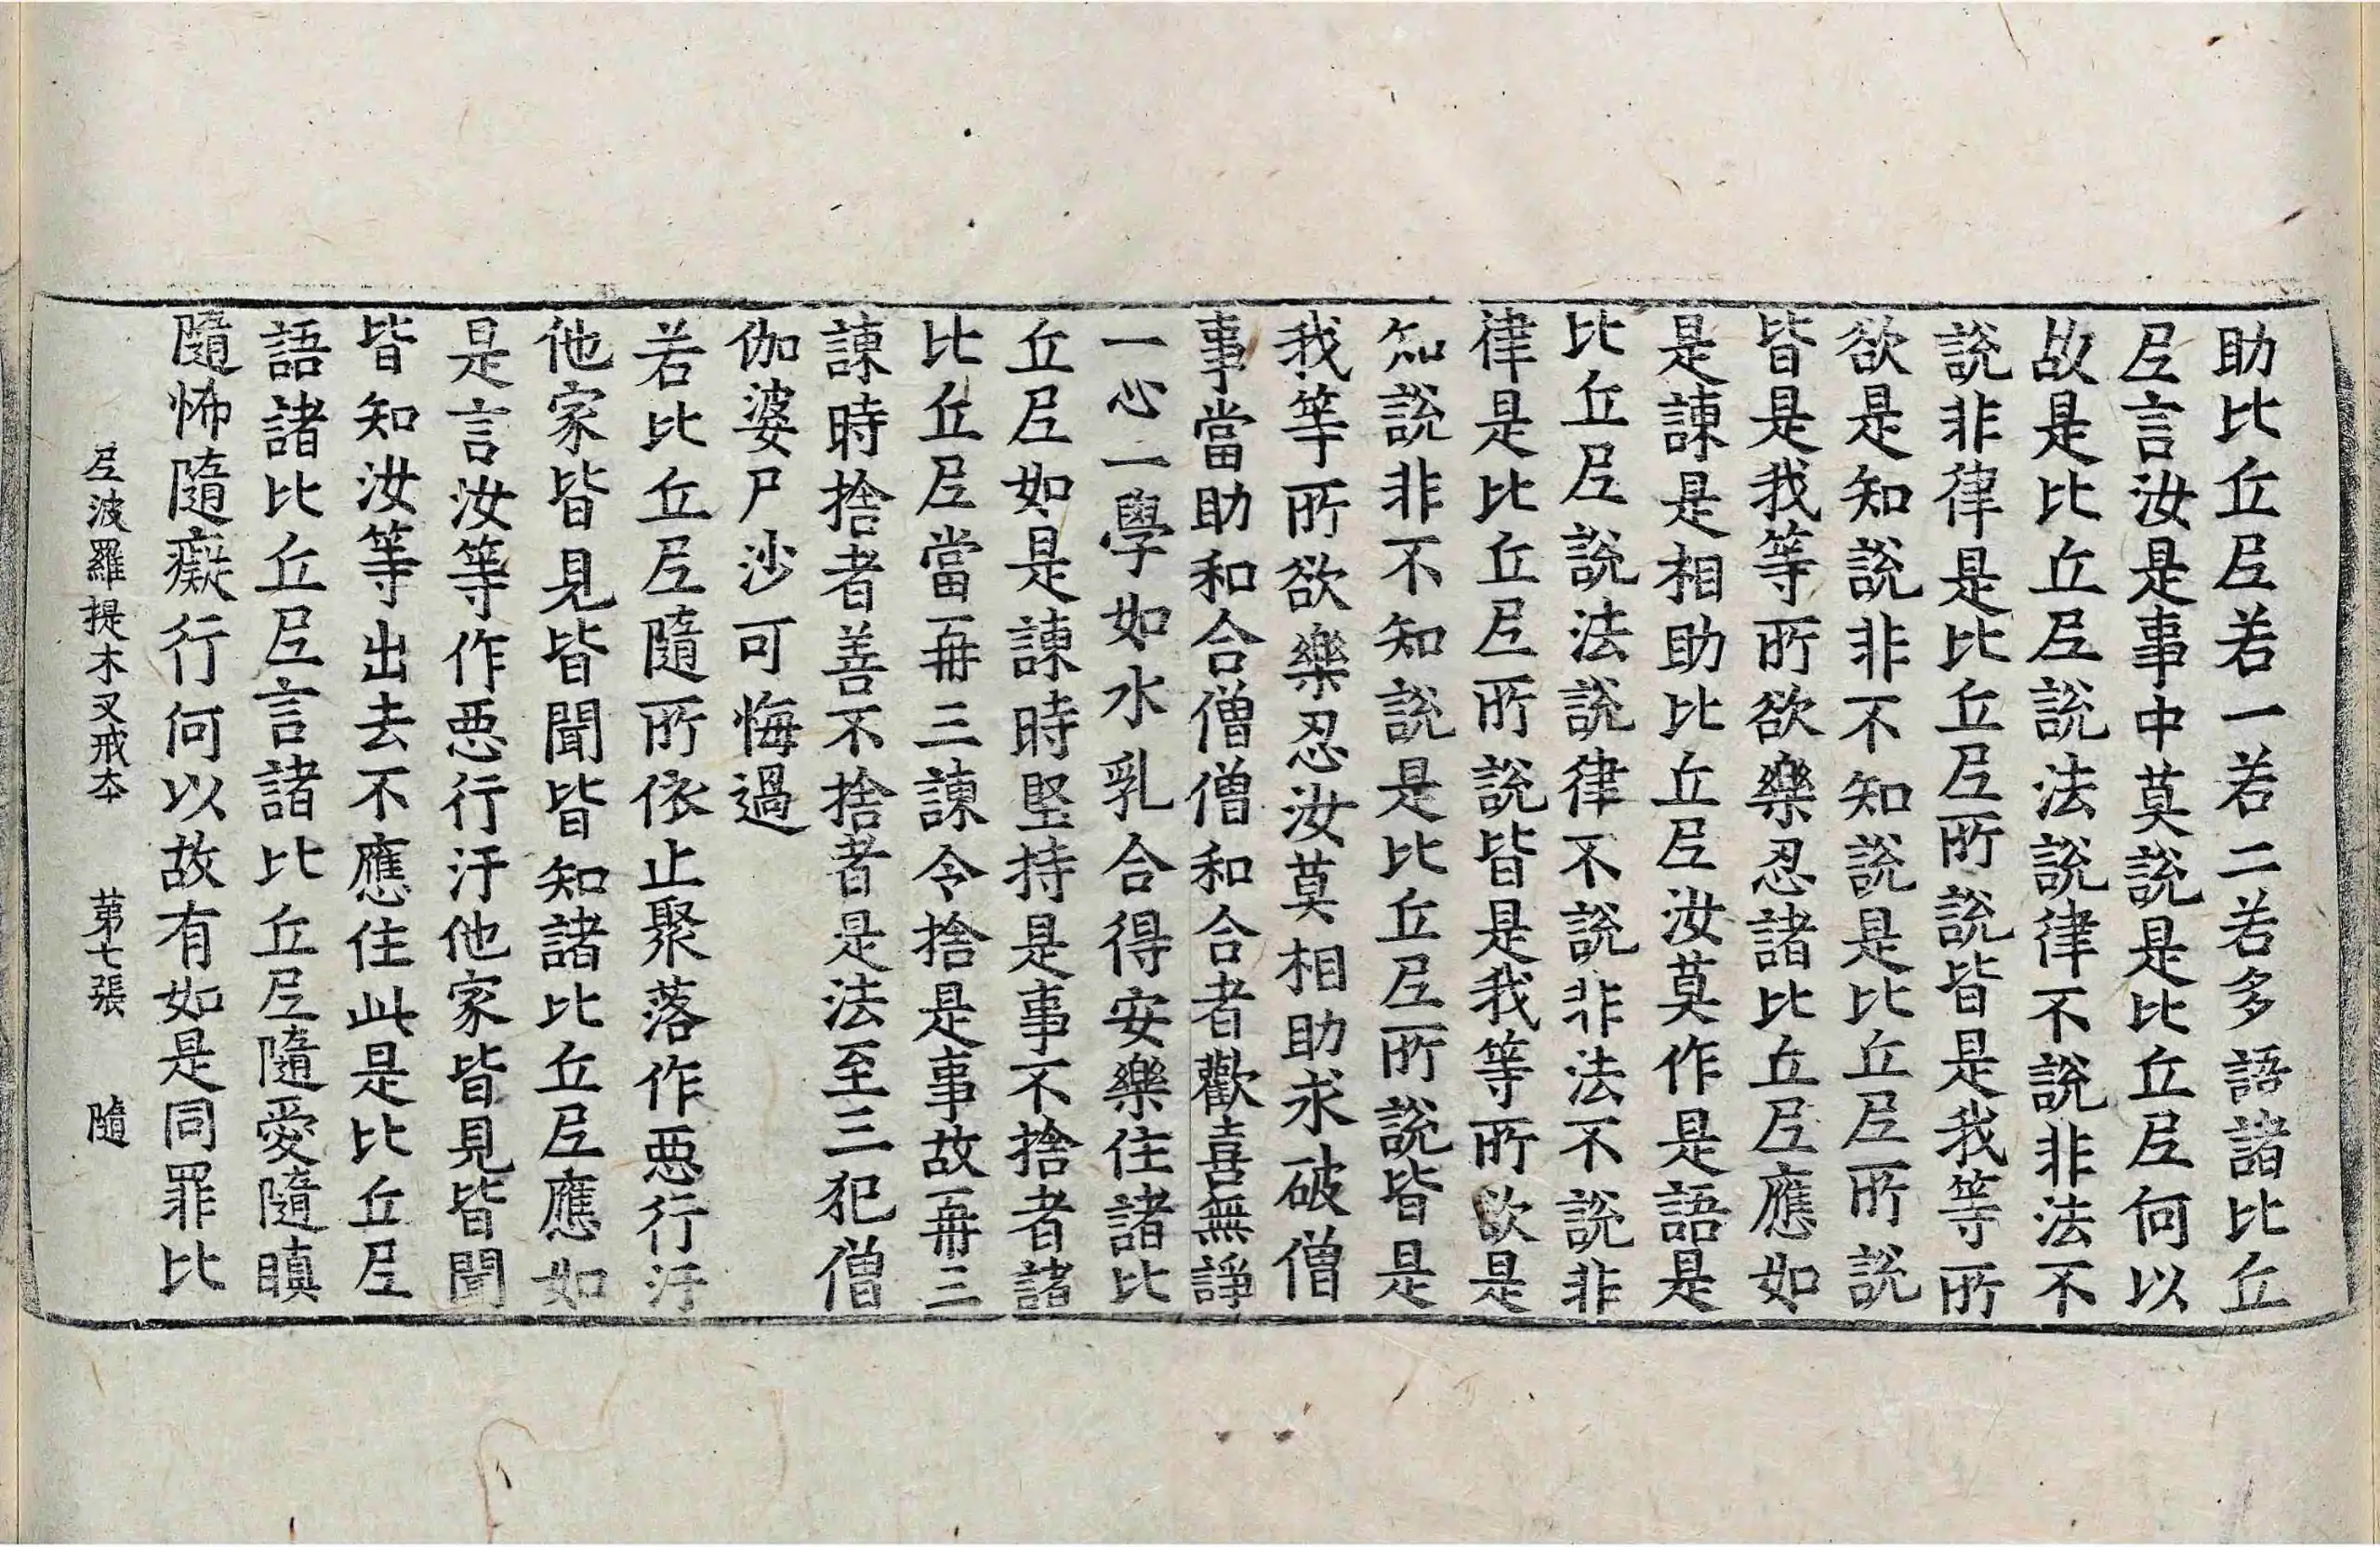 助比丘尼若一若二若多語諸比丘
尼言汝是事中莫說是比丘尼何以
故是比丘尼說法說律不說非法不
說非律是比丘尼所說皆是我等所
欲是知說非不知說是比丘尼所說
皆是我等所欲樂忍諸比丘尼應如
是諫是相助比丘尼汝莫作是語是
比丘尼說法說律不說非法不說非
律是比丘尼所說皆是我等所欲是
知說非不知說是比丘尼所說皆是
我等所欲樂忍汝莫相助求破僧
事當助和合僧僧和合者歡喜無諍
一心一學如水乳合得安樂住諸比
丘尼如是諫時堅持是事不捨者諸
比丘尼當再三諫令捨是事故再三
諫時捨者善不捨者是法至三犯僧
伽婆尸沙可悔過
若比丘尼隨所依止聚落作惡行汙
他家皆見皆聞皆知諸比丘尼應如
是言汝等作惡行汙他家皆見皆聞
皆知汝等出去不應住此是比丘尼
語諸比丘尼言諸比丘尼隨愛隨瞋
隨怖隨癡行何以故有如是同罪比
尼波羅提木叉戒本 第七張 隨